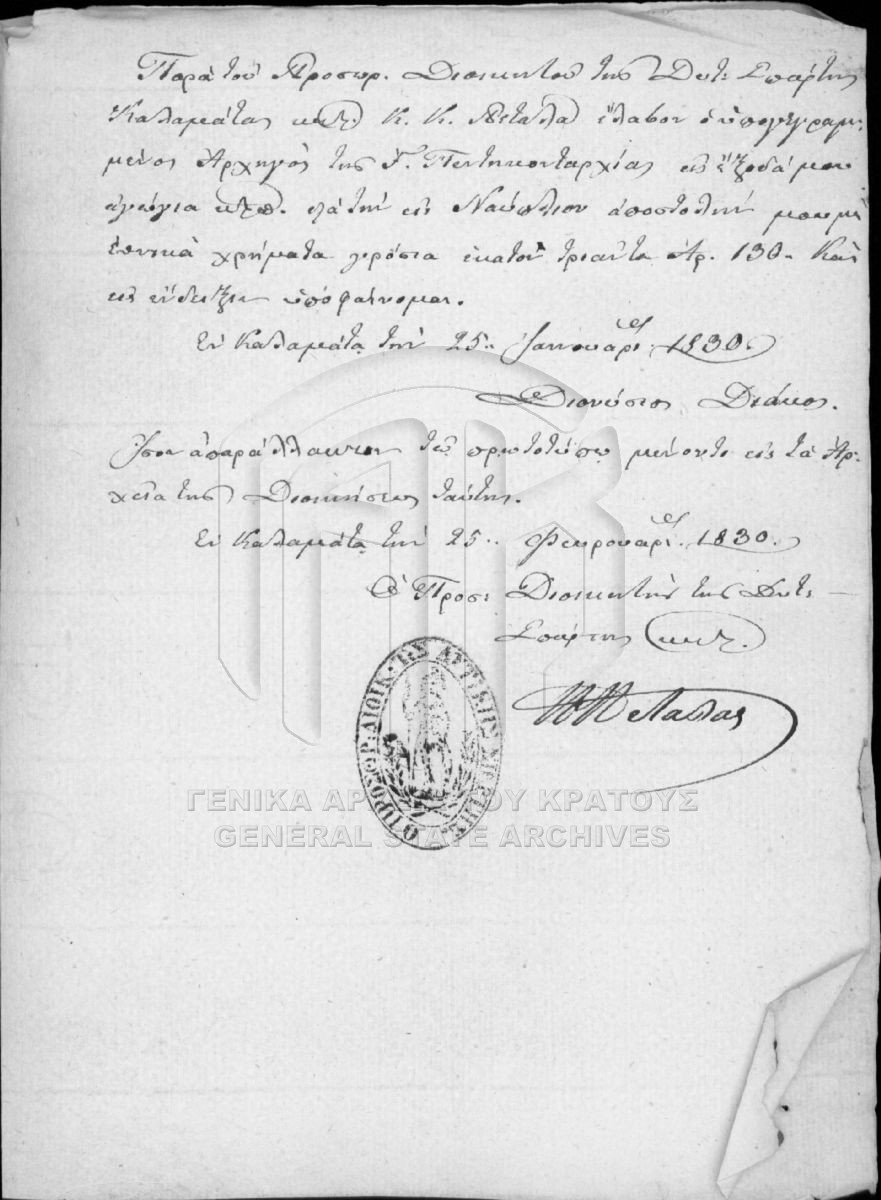 Παρὰ τοῦ Προσωρ. Διοικητοῦ τῆς Δυτ: Σπάρτης
Καλαμάτας κτλ. Κ. Κ. Μεταξᾶ ἔλαβον ὁ ὑπογεγραμ-
μένος Ἀρχηγὸς τῆς Γ. Πεντηκονταρχίας εἰς ἔξοδά μου
ἀγώγια κτλ. διὰ τὴν εἰς Ναύπλιον ἀποστολήν μου μὲ
ἐθνικὰ χρήματα γρόσια ἑκατὸν τριάντα Ἀρ. 130. Καὶ
εἰς ἔνδειξιν ὑποφαίνομαι.
Ἐν Καλαμάτᾳ τὴν 25. Ἰαννουαρί: 1830.
Διονύσιος Διάκος.
Ἴσον ἀπαράλλακτον τῷ πρωτοτύπῳ μένοντι εἰς τὰ Ἀρ-
χεῖα τῆς Διοικήσεως ταύτης.
Ἐν Καλαμάτᾳ τὴν 25. Φευρουαρί. 1830.
Ὁ Προσ: Διοικητὴς τῆς Δυτ:
Σπάρτης κτλ.
Ο ΠΡΟΣΩΡ: ΔΙΟΙΚ: ΤΗΣ ΔΥΤΙΚΗΣ ΣΠΑΡΤΗΣ
ΓΕΝΙΚΑ ΑΡΧΕΙΑ ΤΟΥ ΚΡΑΤΟΥΣ
GENERAL STATE ARCHIVES